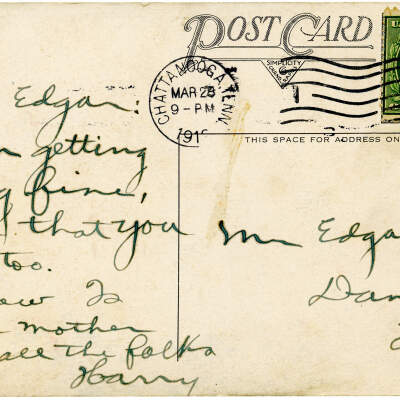 POST CARD
SIMPLICITY
CHATTANOOGA, TENN
MAR 25
9-PM
191
U
THIS SPACE FOR ADDRESS ON
Edgar:
getting
fine,
that you
too.
mother
all the folks
Harry
Mr Edga
Dan